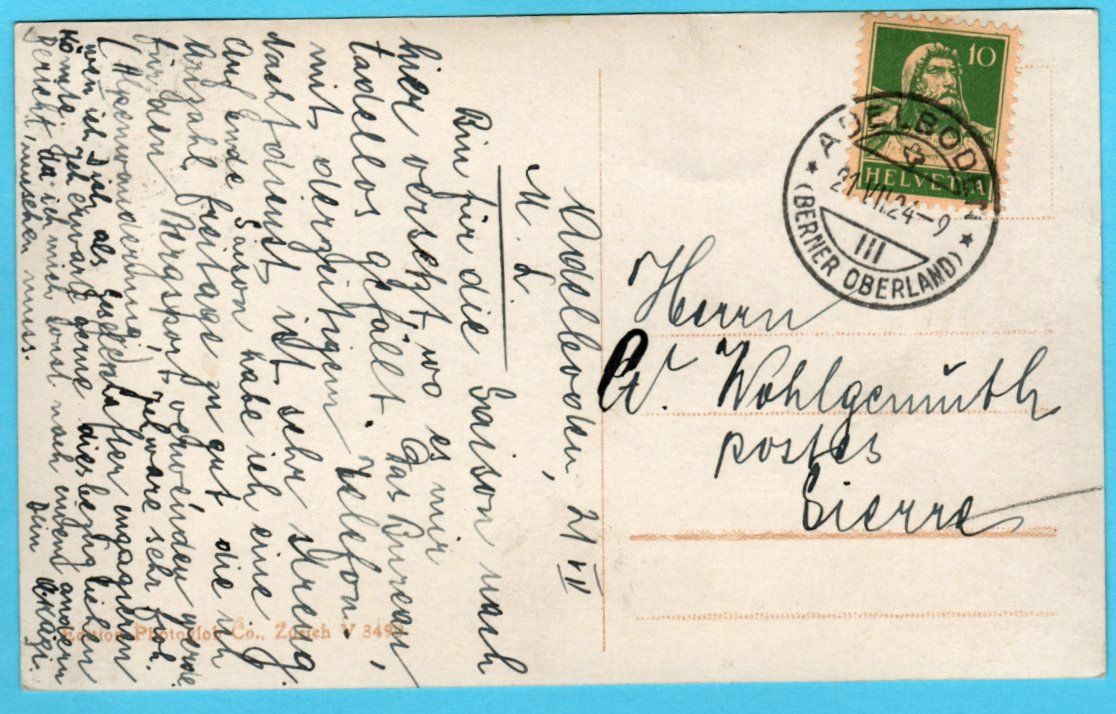 Adelboden, 21 VII
M. L.
Bin für die Saison nach
hier versetzt, wo es mir
tadellos gefällt. Das Bureau,
mit derzeitigem Telefon-
dienst ist sehr streng.
Auf Ende Saison habe ich eine
Anzahl freitage zu gut die ich
für den Bergsport verwenden werde
(Alpenwanderung) wäre sehr froh.
wen ich Dich als Gesellschafter engagieren
könnte. Ich erwarte gerne diesbezüglichen
Bericht, da ich mich sonst nach einem andern
umsehen muss. Dein
Edition Photoglob Co., Zürich V 349
10
HELVETIA
ADELBODEN
21.VII.24–9
III
(BERNER OBERLAND)
Herrn
W. Wohlgemuth
postes
Sierre